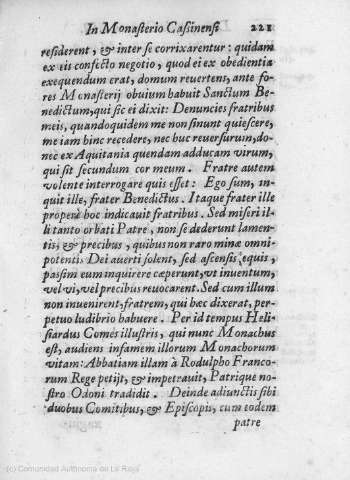 In Monasterio Casinensi 221
residerent, & inter se corrixarentur: quidam
ex eis confecto negotio, quod ei ex obedientia
exequendum erat, domum revertens, ante fo-
res Monasterij obuium habuit Sanctum Be-
nedictum, qui sic ei dixit: Denuncies fratribus
meis, quandoquidem me non sinunt quiescere,
me iam hinc recedere, nec huc reuersurum, do-
nec ex Aquitania quendam adducam virum,
qui sit secundum cor meum. Fratre autem
volente interrogare quis esset: Ego sum, in-
quit ille, frater Benedictus. Itaque frater ille
properè hoc indicauit fratribus. Sed miseri il-
li tanto orbati Patre, non se dederunt lamen-
tis, & precibus, quibus non raro minæ omni-
potentis Dei auerti solent, sed ascensis equis,
passim eum inquirere cœperunt, vt inuentum,
vel vi, vel precibus reuocarent. Sed cum illum
non inuenirent, fratrem, qui hæc dixerat, per-
petuo ludibrio habuere. Per id tempus Heli-
siardus Comes illustris, qui nunc Monachus
est, audiens infamem illorum Monachorum
vitam: Abbatiam illam à Rodulpho Franco-
rum Rege petijt, & impetrauit, Patrique no-
stro Odoni tradidit. Deinde adiunctis sibi
duobus Comitibus, & Episcopis, cum eodem
patre
(c) Comunidad Autónoma de La Rioja